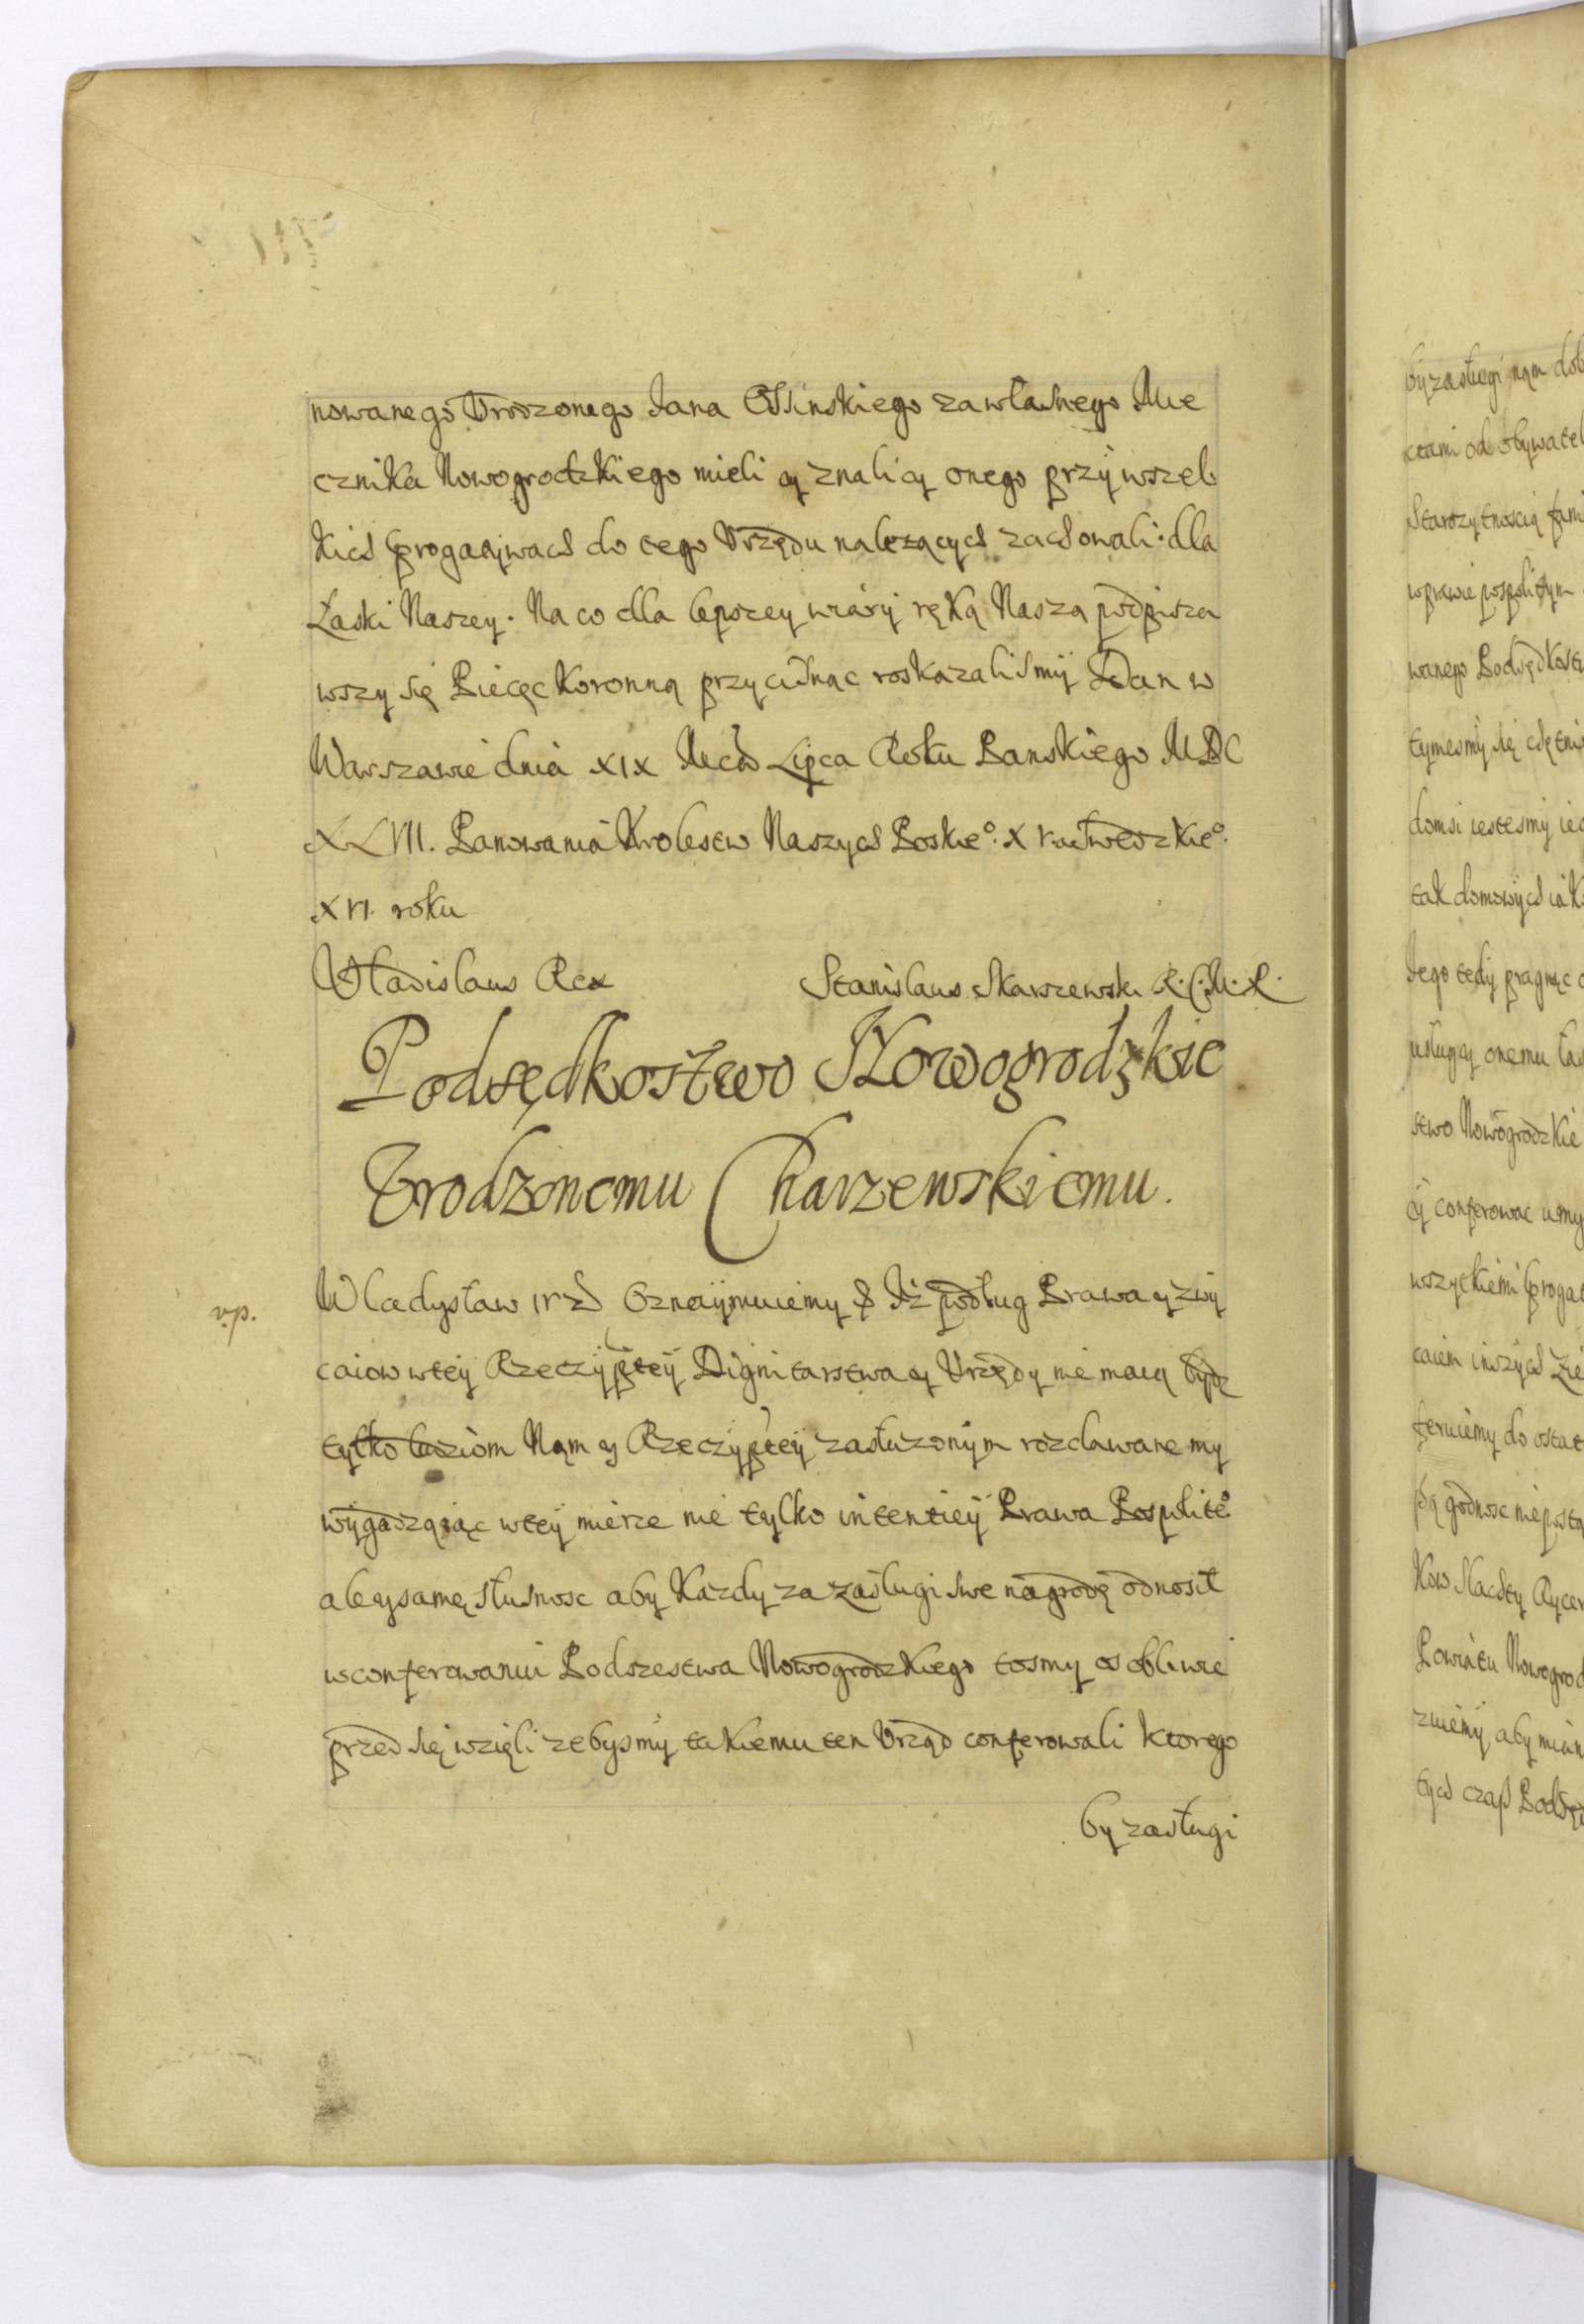 nowanego Vrodzonego Jana Ossinskiego za własnego Mie
cznika Nowogrodzkiego mieli y znali y onego przy wszel
kich progatywach do tego Vrzędu należących zachowali. dla
Łaski Naszey. Na co dla lepszey wiáry ręką Naszą podpisza
wszy się Pieczęc Koronną przycisnąc roskazalismy Dan w
Warszawie dnia XIX Mcá Lipca Roku Panskiego MDC
XLVII. Panowania Krolestw Naszych Polskieº. XV. a Szwedzkieº.
XVI. roku
Vladislaus Rex Stanislaus Skarszewski R.C.M.R.
Podsędkostwo Nowogrodzkie
Vrodzonemu Charzewskiemu.
Władysław IV Z B Oznaÿmuiemy & Iż podług Prawa y zwy
caiow w teÿ Rzeczÿpteÿ Dignitarstwa y Vrzędy nie maią bydz
tylko ludziom Nąm y Rzeczÿpteÿ zasłużonÿm rozdawane my
wygadzaiąc w teÿ mierze nie tylko intentieÿ Prawa Pospoliteº
ale y samę słusnosc aby każdy za zasługi swe nagrodę odnosił
w conferowaniu Podszestwa Nowogrodzkiego tosmy osobliwie
przed się wzięli zebysmy takiemu ten Vrząd conferowali ktorego
by zasługi
by zasługi nąm dob
ctami od obywatel
Starozytnoscią fam
w prawie pospolitym
wanego Podsędkost
tymesmy się chętni
domsi iestesmy ieg
tak domowych iak
Jego tedy pragnąc
usługy onemu
stwo Nowogrodzkie
y conferowac umy
wszytkiemi progat
caiem inszych Zie
feruiemy do ostat
godnosc nie posta
kow Slachty Rycer
Powiatu Nowogrod
zuiemy aby mian
tych czas Podsęd